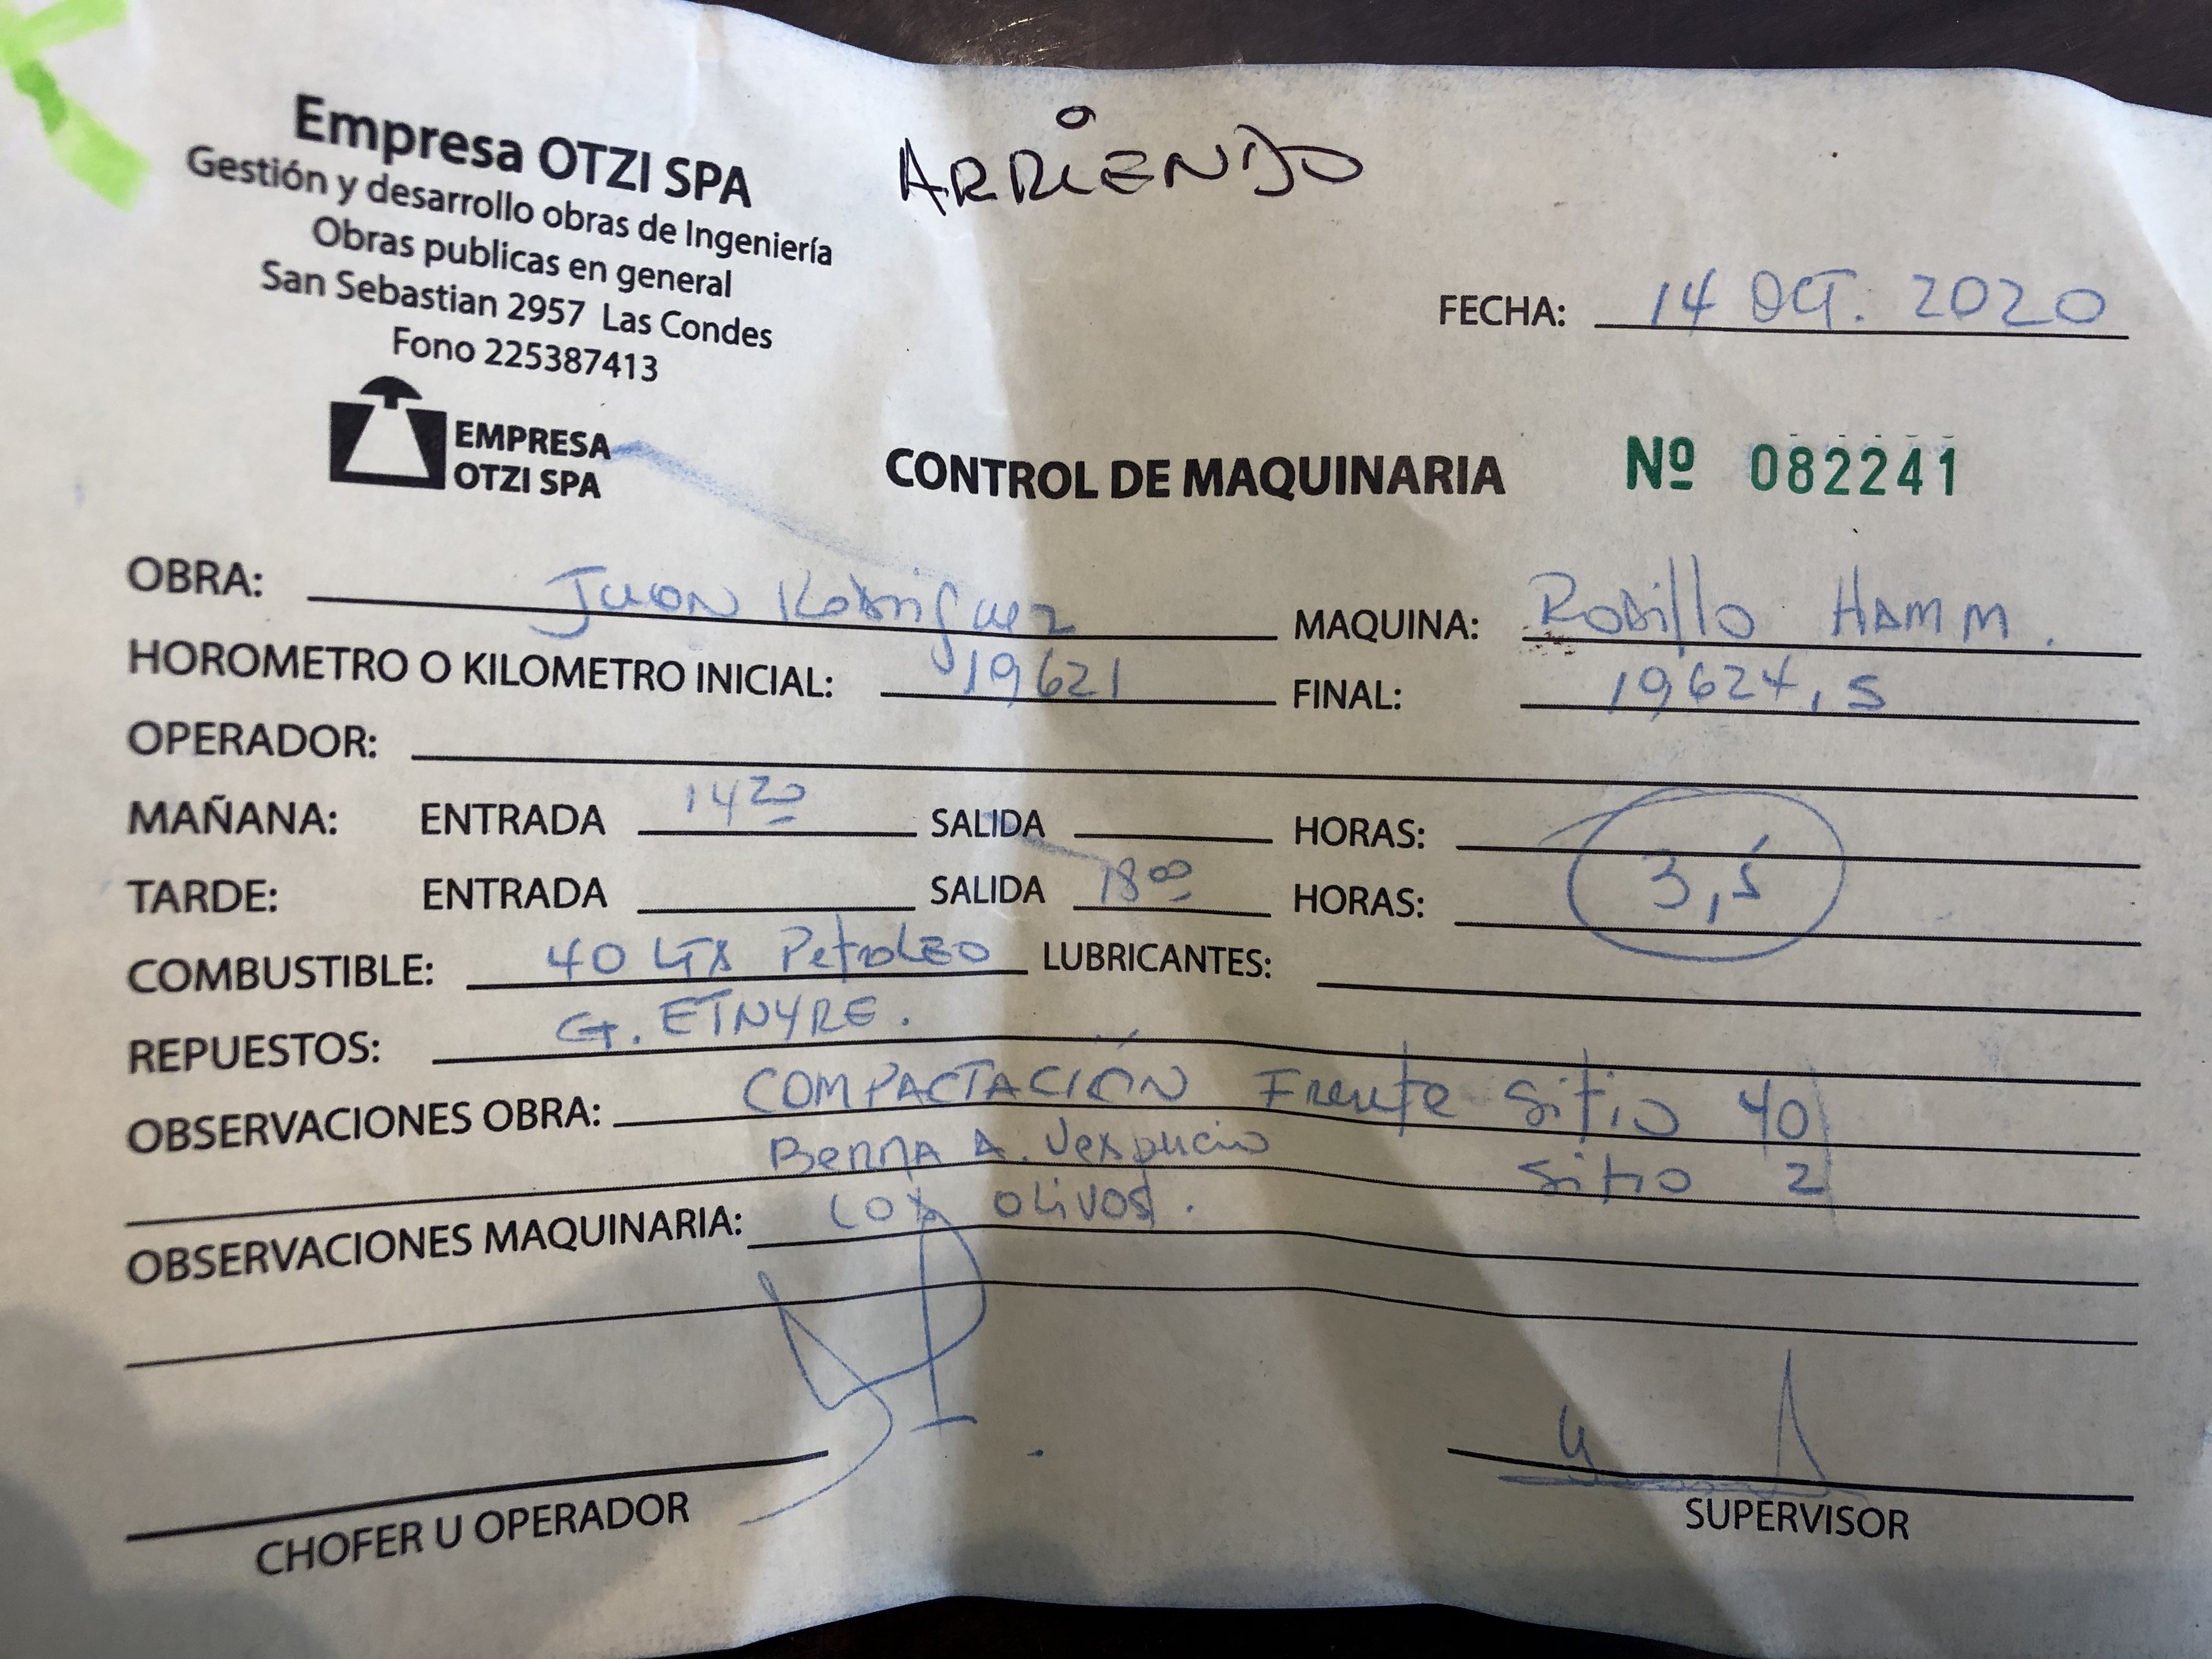 Empresa OTZI SPA ARRIENDO
Gestión y desarrollo obras de Ingeniería
Obras publicas en general
San Sebastian 2957 Las Condes
Fono 225387413
FECHA: 14 OCT. 2020
EMPRESA
OTZI SPA
CONTROL DE MAQUINARIA Nº 082241
OBRA: Juan Rodriguez MAQUINA: Rodillo HAMM.
HOROMETRO O KILOMETRO INICIAL: 19621 FINAL: 19624,5
OPERADOR:
MAÑANA: ENTRADA 14 30 SALIDA HORAS:
TARDE: ENTRADA SALIDA 18 00 HORAS: 3,5
COMBUSTIBLE: 40 LTR Petroleo LUBRICANTES:
REPUESTOS: G. ETNYRE.
OBSERVACIONES OBRA: COMPACTACIÓN Frente Sitio 40
Berma A. Vespucio Sitio 2
OBSERVACIONES MAQUINARIA: olivos.
CHOFER U OPERADOR
SUPERVISOR